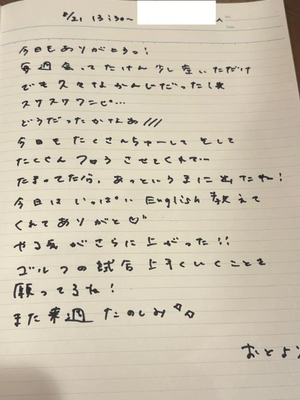 8/21 13:30〜
今日もありがとう!
毎週会ってたけん少し空いただけ
でも久々なかんじだったしぃ
スケスケワンピ...
どうだったかなぁ///
今日もたくさんちゅーして そして
たくさん させてくれて...
たまってたら、あっというまに出たね!
今日はいっぱい English 教えて
くれてありがと♡
やる気がさらに上がった!!
ゴルフの試合上手くいくことを
願ってるね!
また来週 たのしみ